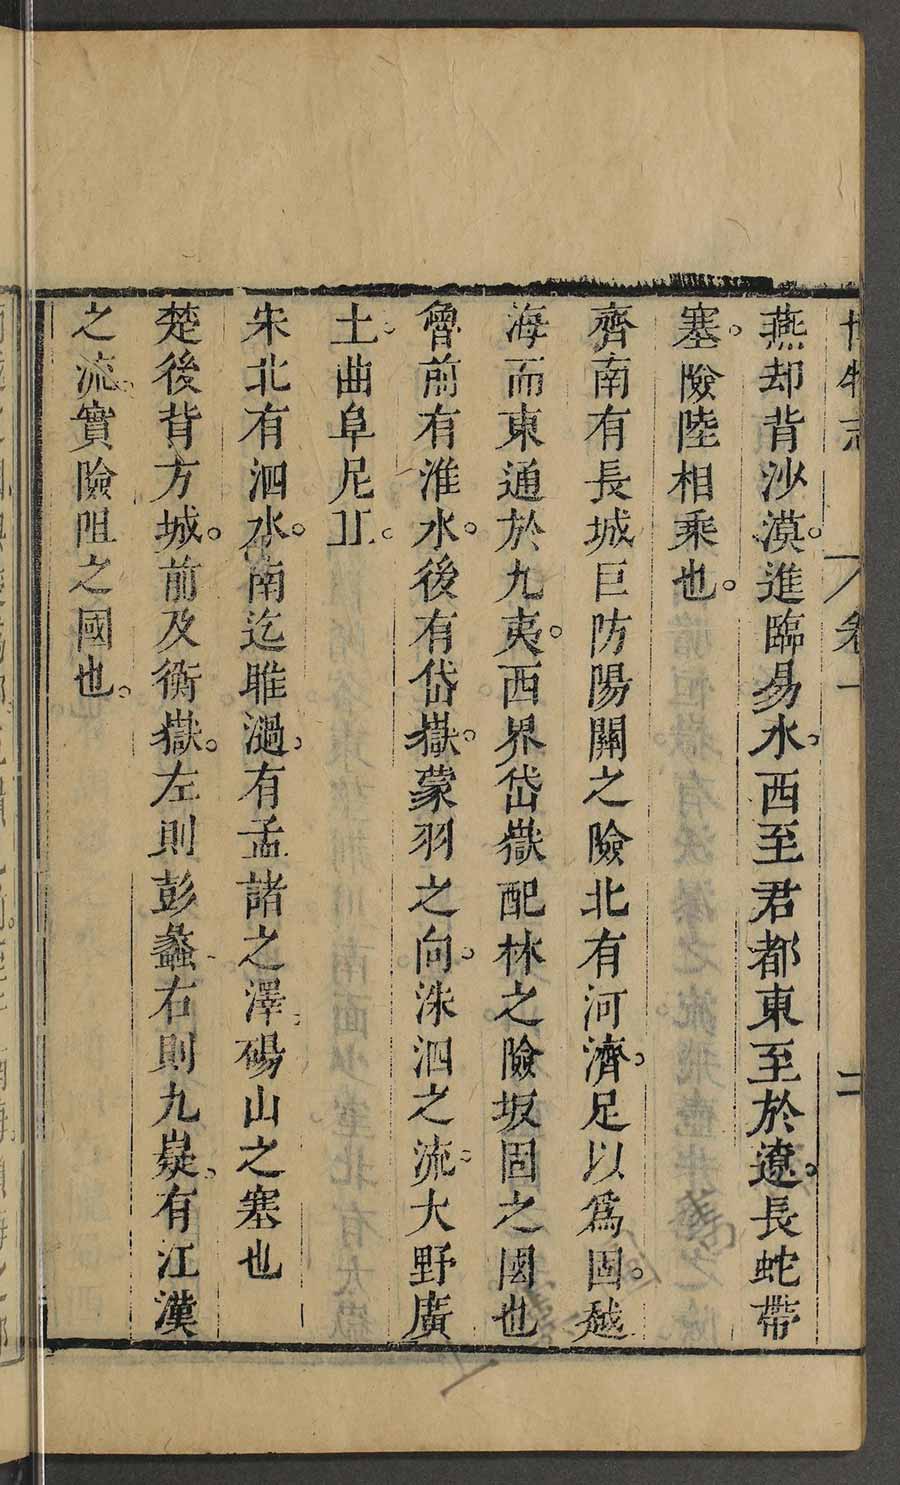 博物志 卷一 二
燕却背沙漠。進臨易水。西至君都東至於遼。長蛇帶
塞。險陸相乘也。
齊南有長城巨防陽關之險北有河濟。足以爲固。越
海而東通於九夷。西界岱嶽配林之險坂固之國也
魯前有淮水。後有岱嶽。蒙羽之向。洙泗之流。大野廣
土。曲阜尼丘。
宋北有泗水。南迄睢濄。有孟諸之澤。碭山之塞也
楚後背方城。前及衡嶽。左則彭蠡。右則九嶷。有江漢
之流。實險阻之國也。